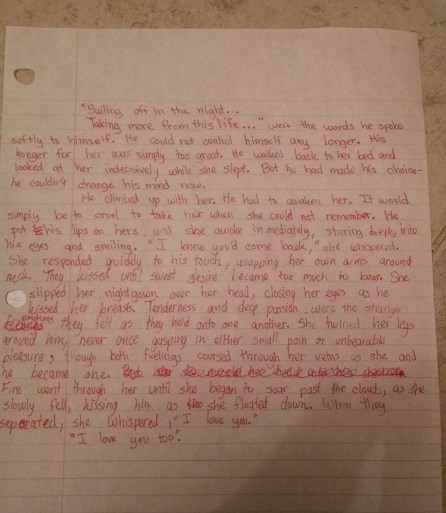 "Sailing off in the night...
Taking more from this life..." were the words he spoke
softly to himself. He could not control himself any longer. His
hunger for her was simply too great. He walked back to her bed and
looked at her indecisively while she slept. But he had made his choice-
he couldn't change his mind now.
He climbed up with her. He had to awaken her. It would
simply be to cruel to take her when she could not remember. He
put his lips on hers and she awoke immediately, staring deeply into
his eyes and smiling. "I knew you'd come back," she whispered.
She responded quickly to his touch, wrapping her own arms around
neck. They kissed until sweet desire became too much to bear. She
slipped her nightgown over her head, closing her eyes as he
kissed her breasts. Tenderness and deep passion were the strange
emotions they felt as they held onto one another. She twined her legs
around him, never once gasping in either small pain or unbearable
pleasure, though both feelings coursed through her veins as she and
he became one.
Fire went through her until she began to soar past the clouds, as she
slowly fell, kissing him as she floated down. When they
separated, she whispered, "I love you."
"I love you too".